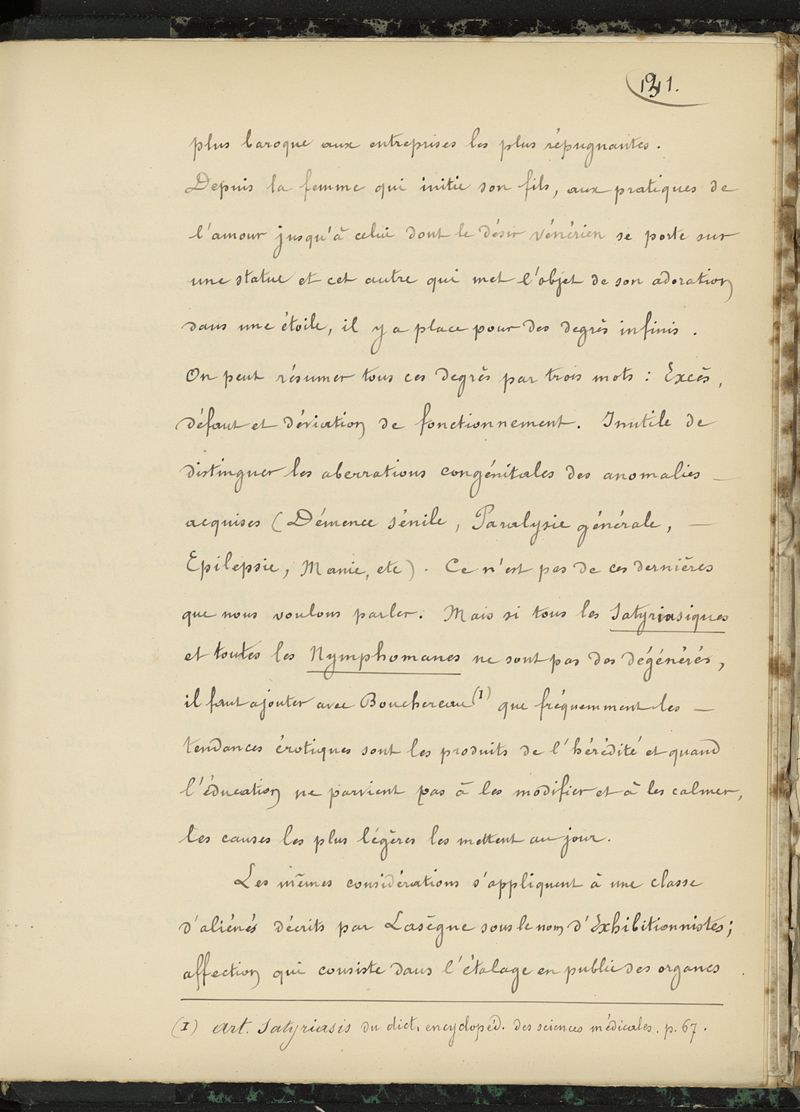 121.
plus baroque aux entreprises les plus répugnantes.
Depuis la femme qui initie son fils, aux pratiques de
l'amour jusqu'à celui dont le désir vénérien se porte sur
une statue et cet autre qui met l'objet de son adoration
dans une étoile, il y a place pour des degrés infinis.
On peut résumer tous ces degrés par trois mots : Excès,
défaut et déviation de fonctionnement. Inutile de
distinguer les aberrations congénitales des anomalies —
acquises (Démence sénile, Paralysie générale, —
Epilepsie, Manie, etc). Ce n'est pas de ces dernières
que nous voulons parler. Mais si tous les Satyriasiques
et toutes les Nymphomanes ne sont pas des dégénérés,
il faut ajouter avec Bouchereau (1) que fréquemment les —
tendances érotiques sont les produits de l'hérédité et quand
l'éducation ne parvient pas à les modifier et à les calmer,
les causes les plus légères les mettent au jour.
Les mêmes considérations s'appliquent à une classe
d'aliénés décrits par Lasègue sous le nom d'Exhibitionnistes;
affection qui consiste dans l'étalage en public des organes
(1) Art. Satyriasis du dict. encyclopéd. des sciences médicales. p. 67.